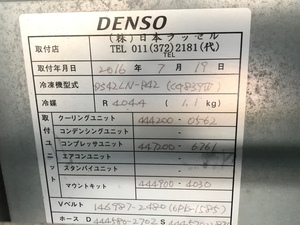 DENSO
取付店 (株)日本フッセル
TEL 011(372)2181(代)
TEL
取付年月日 2016 年 7 月 19 日
冷凍機型式
冷媒 R 404A ( 1.1 kg)
取付ユニット
クーリングユニット 444200-0562
コンデンシングユニット -
コンプレッサユニット 447200-6761
エアコンユニット -
スタンバイユニット -
マウントキット 444900-4030
Vベルト 146987-2480 (6PK-1585)
ホース D 444580-2702 S